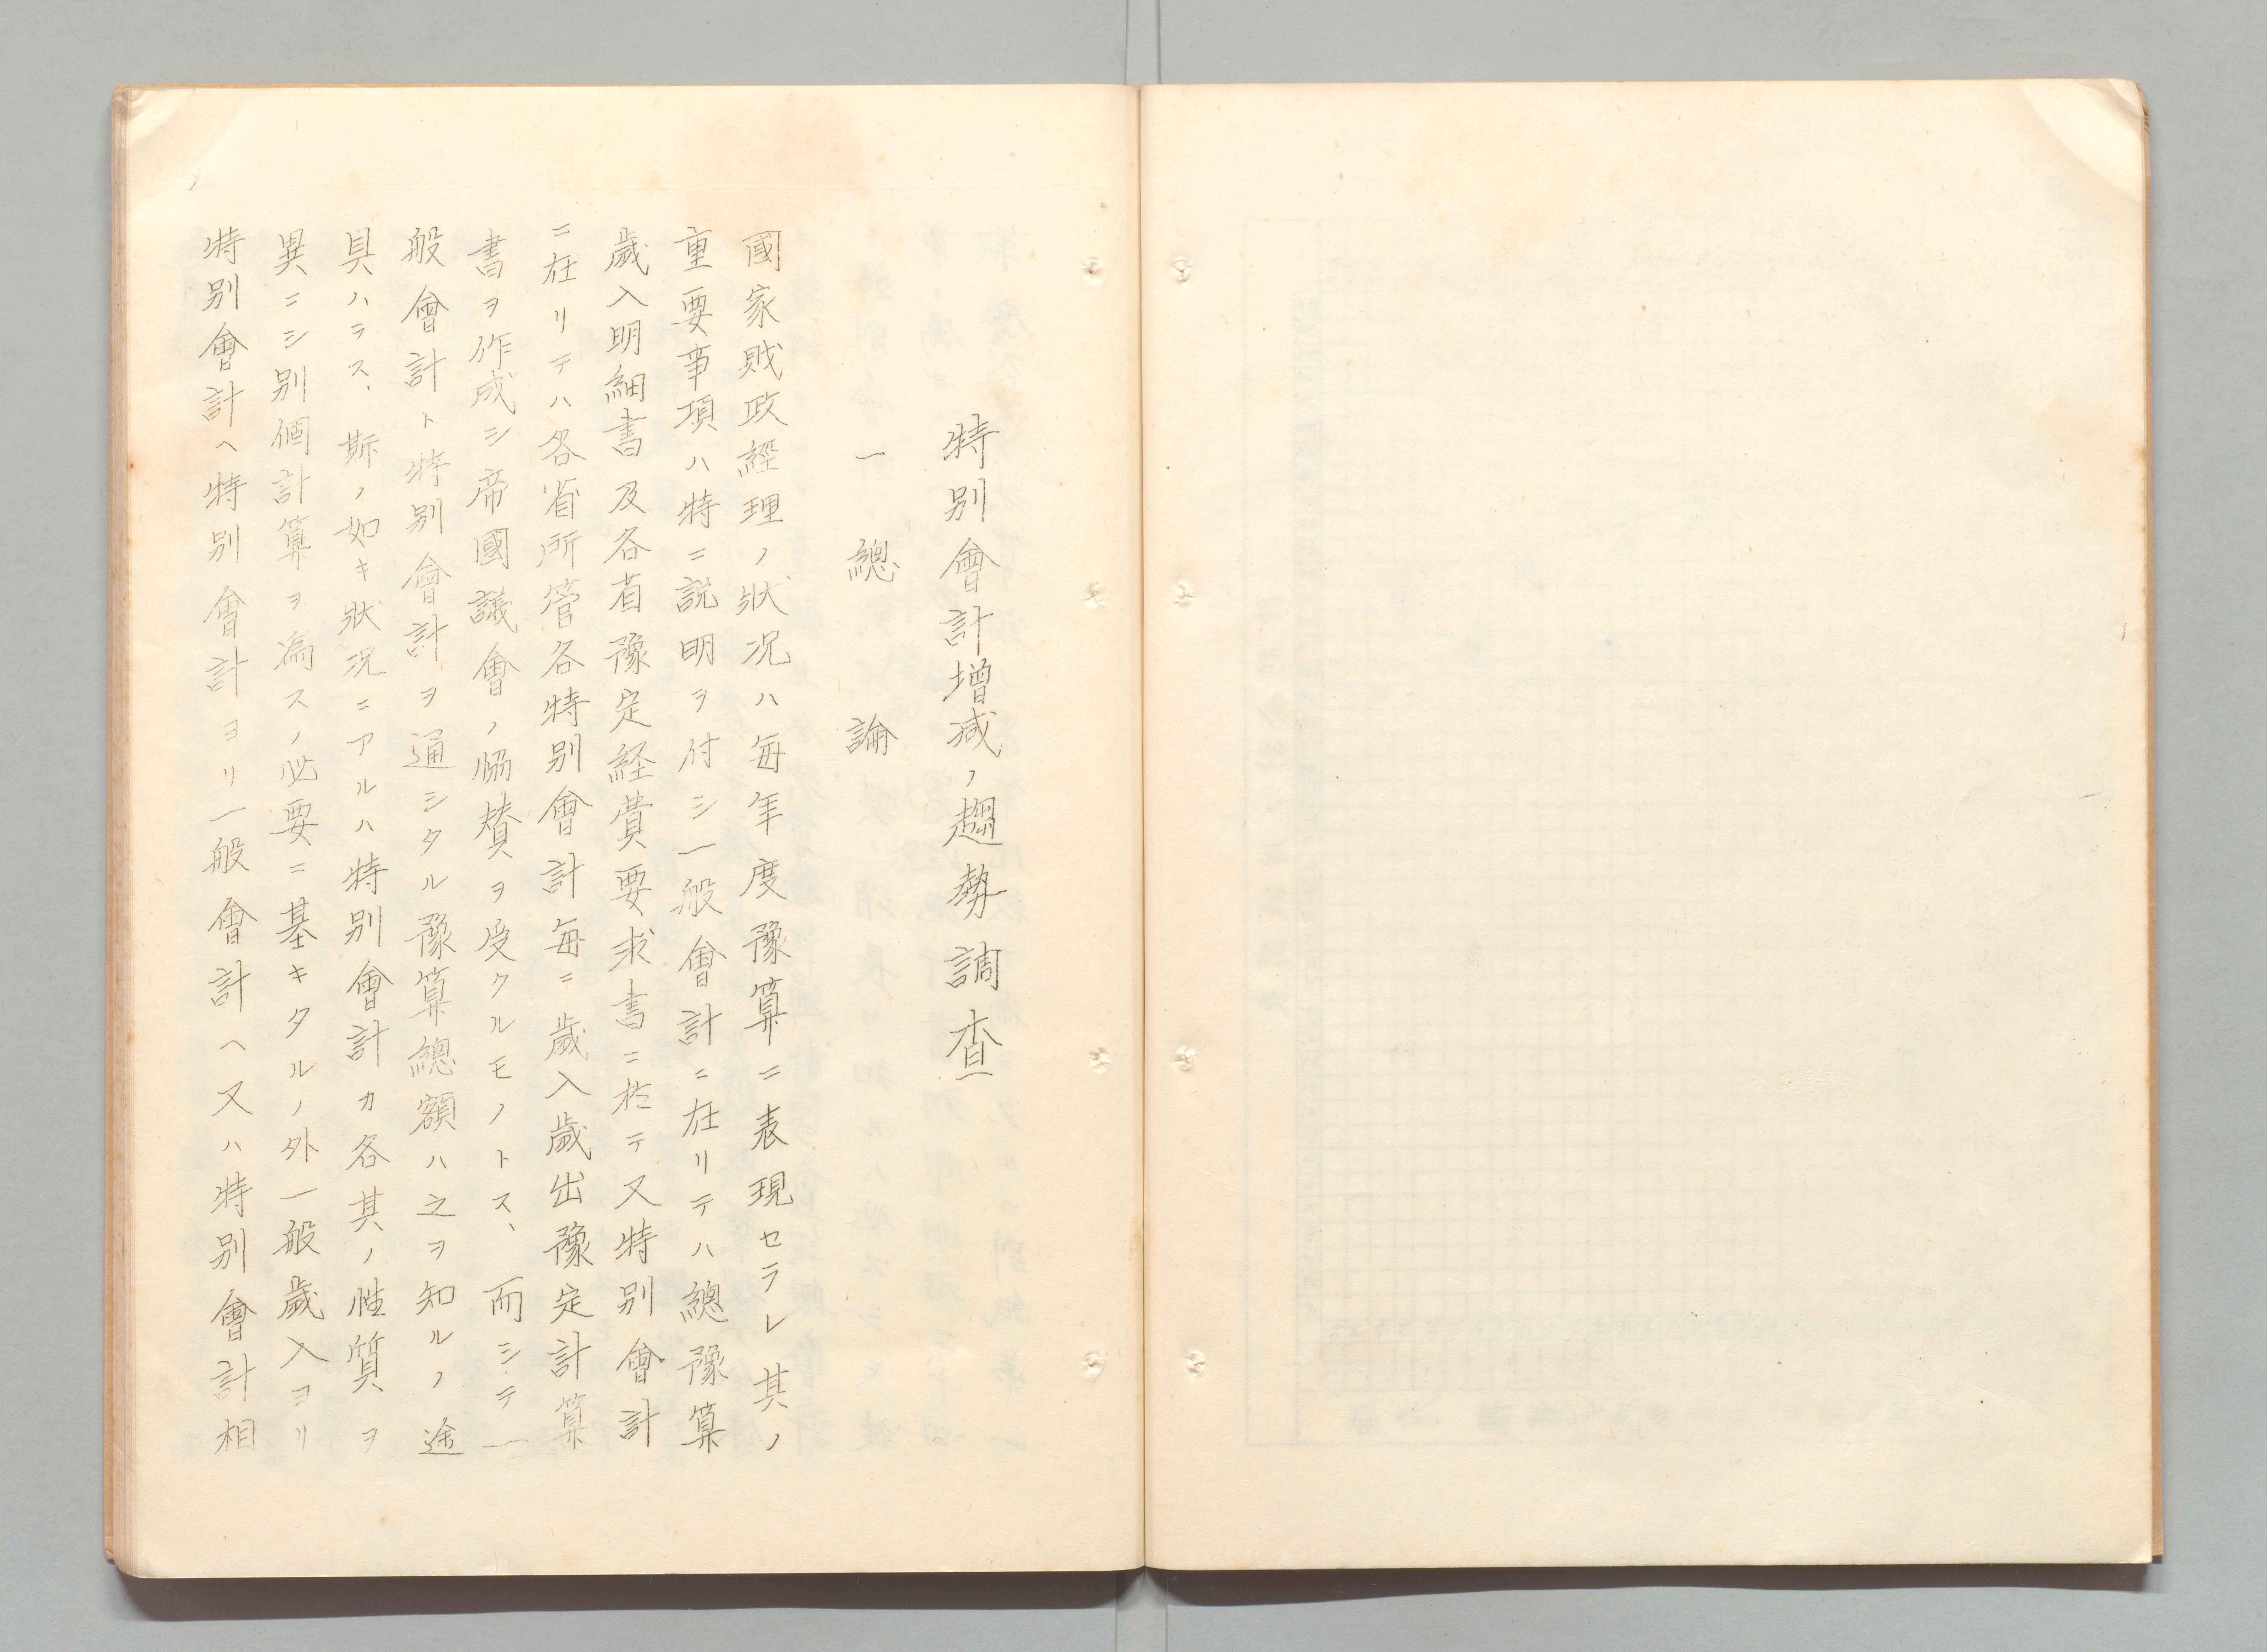 特別會計增減ノ趨勢調査
一總論
國家財政經理ノ狀況ハ每年度豫算ニ表現セラレ其ノ
重要事項ハ特ニ説明ヲ付シ一般會計ニ在リテハ總豫算
歲入明細書及各省豫定経費要求書ニ於テ又特別會計
ニ在リテハ各省所管各特別會計每ニ歲入歲出豫定計算
書ヲ作成シ帝國議會ノ協賛ヲ受クルモノトス、而シテ一
般會計ト特別會計ヲ通シタル豫算總額ハ之ヲ知ルノ途
具ハラス、斯ノ如キ狀況ニアルハ特別會計カ各其ノ性質ヲ
異ニシ別個計算ヲ為スノ必要ニ基キタルノ外一般歲入ヨリ
特別會計ヘ特別會計ヨリ一般會計ヘ又ハ特別會計相